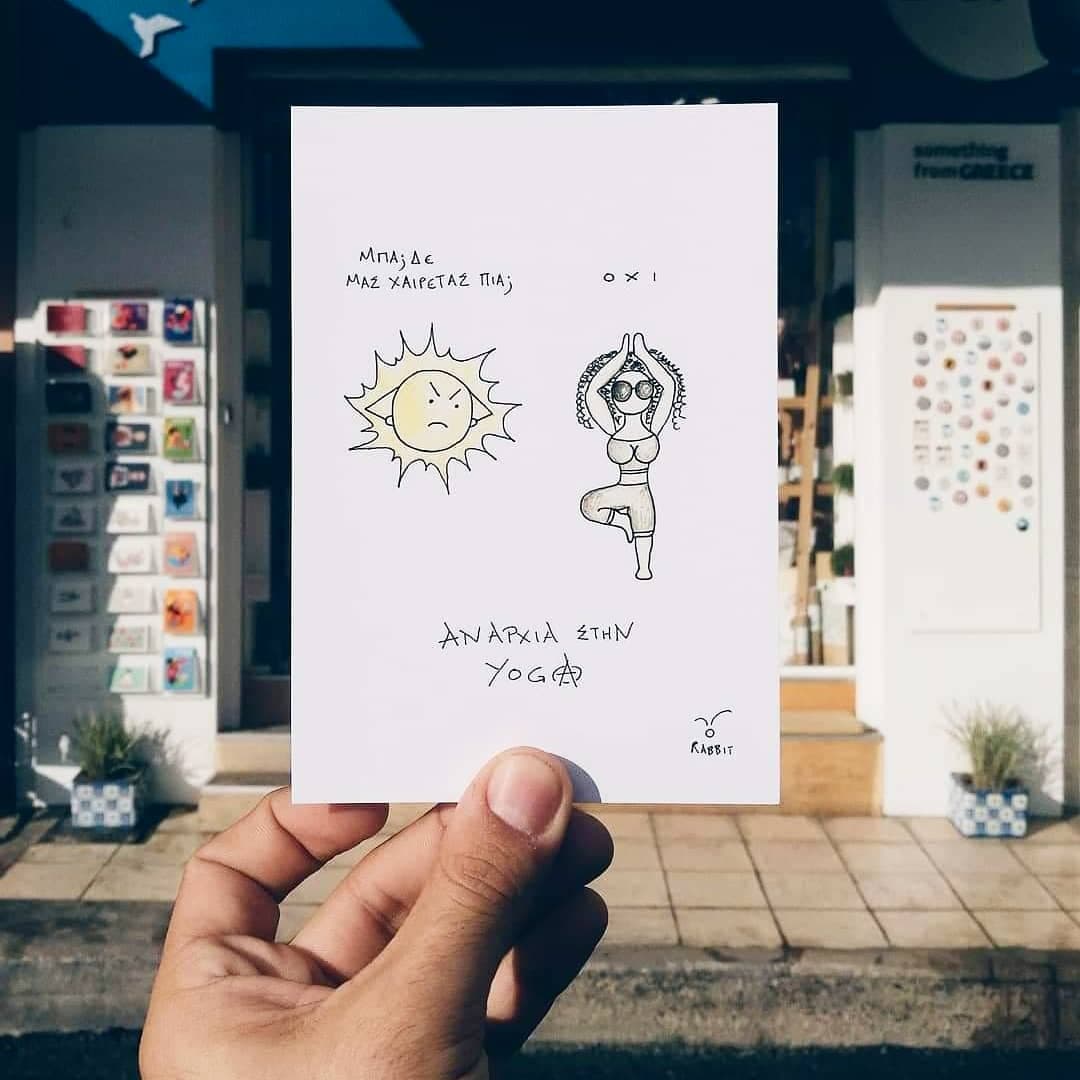 ΜΠΑ; ΔΕ
ΜΑΣ ΧΑΙΡΕΤΑΣ ΠΙΑ;
ΟΧΙ
ΑΝΑΡΧΙΑ ΣΤΗΝ
YOGA
RABBIT
something
fromGREECE